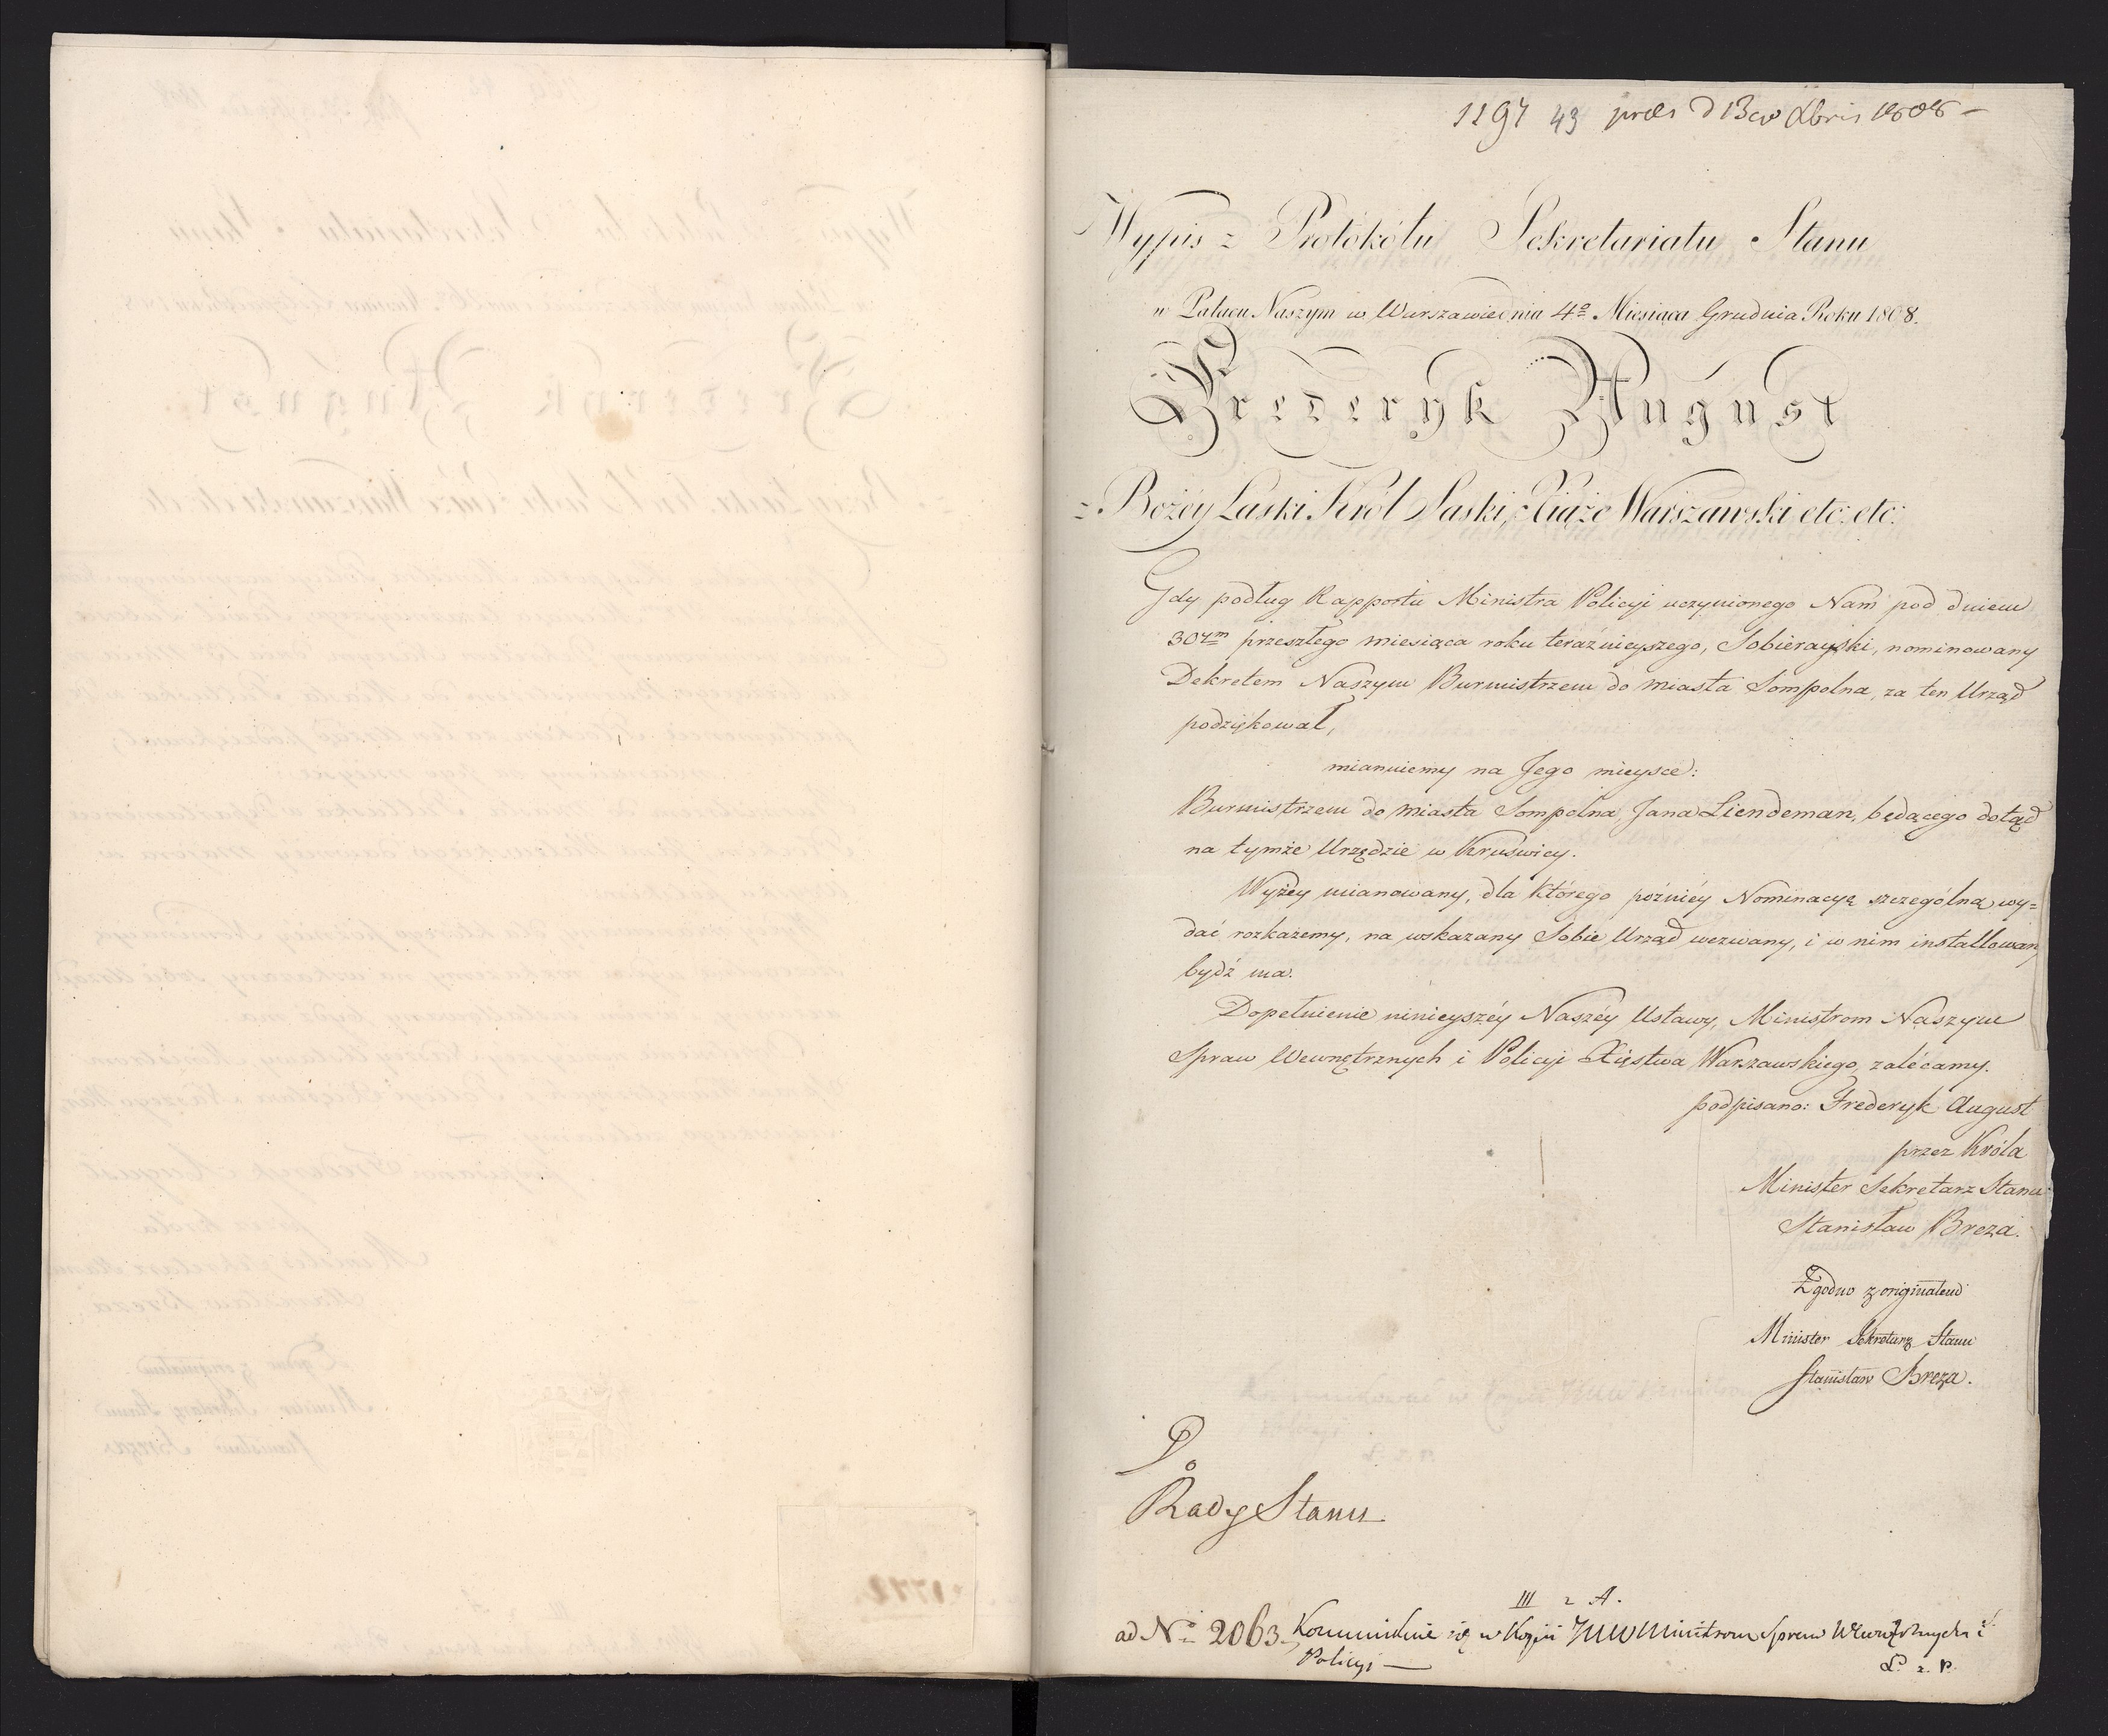 1297 43 præs d 13 Xbris 1808 –
Wypis z Protókółu Sekretariatu Stanu
w Pałacu Naszym w Warszawie dnia 4º Miesiąca Grudnia Roku 1808.
Frederyk August
z Bożéy Łaski Król Saski, Xiąże Warszawski etc: etc:
Gdy podług Rapportu Ministra Policyi uczynionego Nam pod dniem
30ym przeszłego miesiąca roku teraźnieyszego, Sobierayski, nominowany
Dekretem Naszym Burmistrzem do miasta Sompolna, za ten Urząd
podziękował,
mianuiemy na Jego mieysce:
Burmistrzem do miasta Sompolna, Jana Liendeman, będącego dotąd
na tymże Urzędzie w Kruświcy.
Wyżey mianowany, dla którego poźniéy Nominacyą szczególną wy=
dać rozkażemy, na wskazany Sobie Urząd wezwany, i w nim installowany
bydź ma.
Dopełnienie ninieyszéy Naszéy Ustawy, Ministrom Naszym
Spraw Wewnętrznych i Policyi Xięstwa Warszawskiego, zalécamy.
podpisano: Frederyk August
przez Króla
Minister Sekretarz Stanu
Stanisław Breza.
Zgodno z originałem
Minister Sekretarz Stanu
Stanisław Breza.
Do
Rady Stanu
III 2 A.
ad Nº 2063. Kommunikuie się w Kopii JWW Ministrom Spraw Wewnętrznych i
Policyi —
L. z. P.